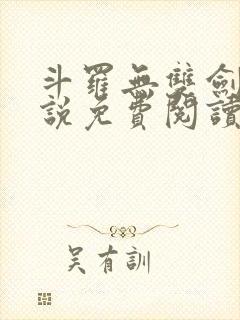 斗羅無雙劍
說免費閱讀
吳有訓